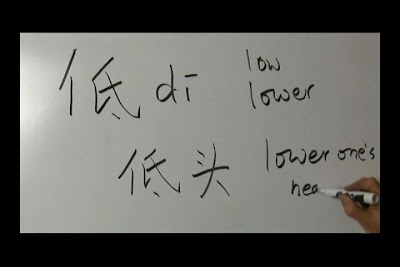 低 dī low
lower
低头 lower one's
hea